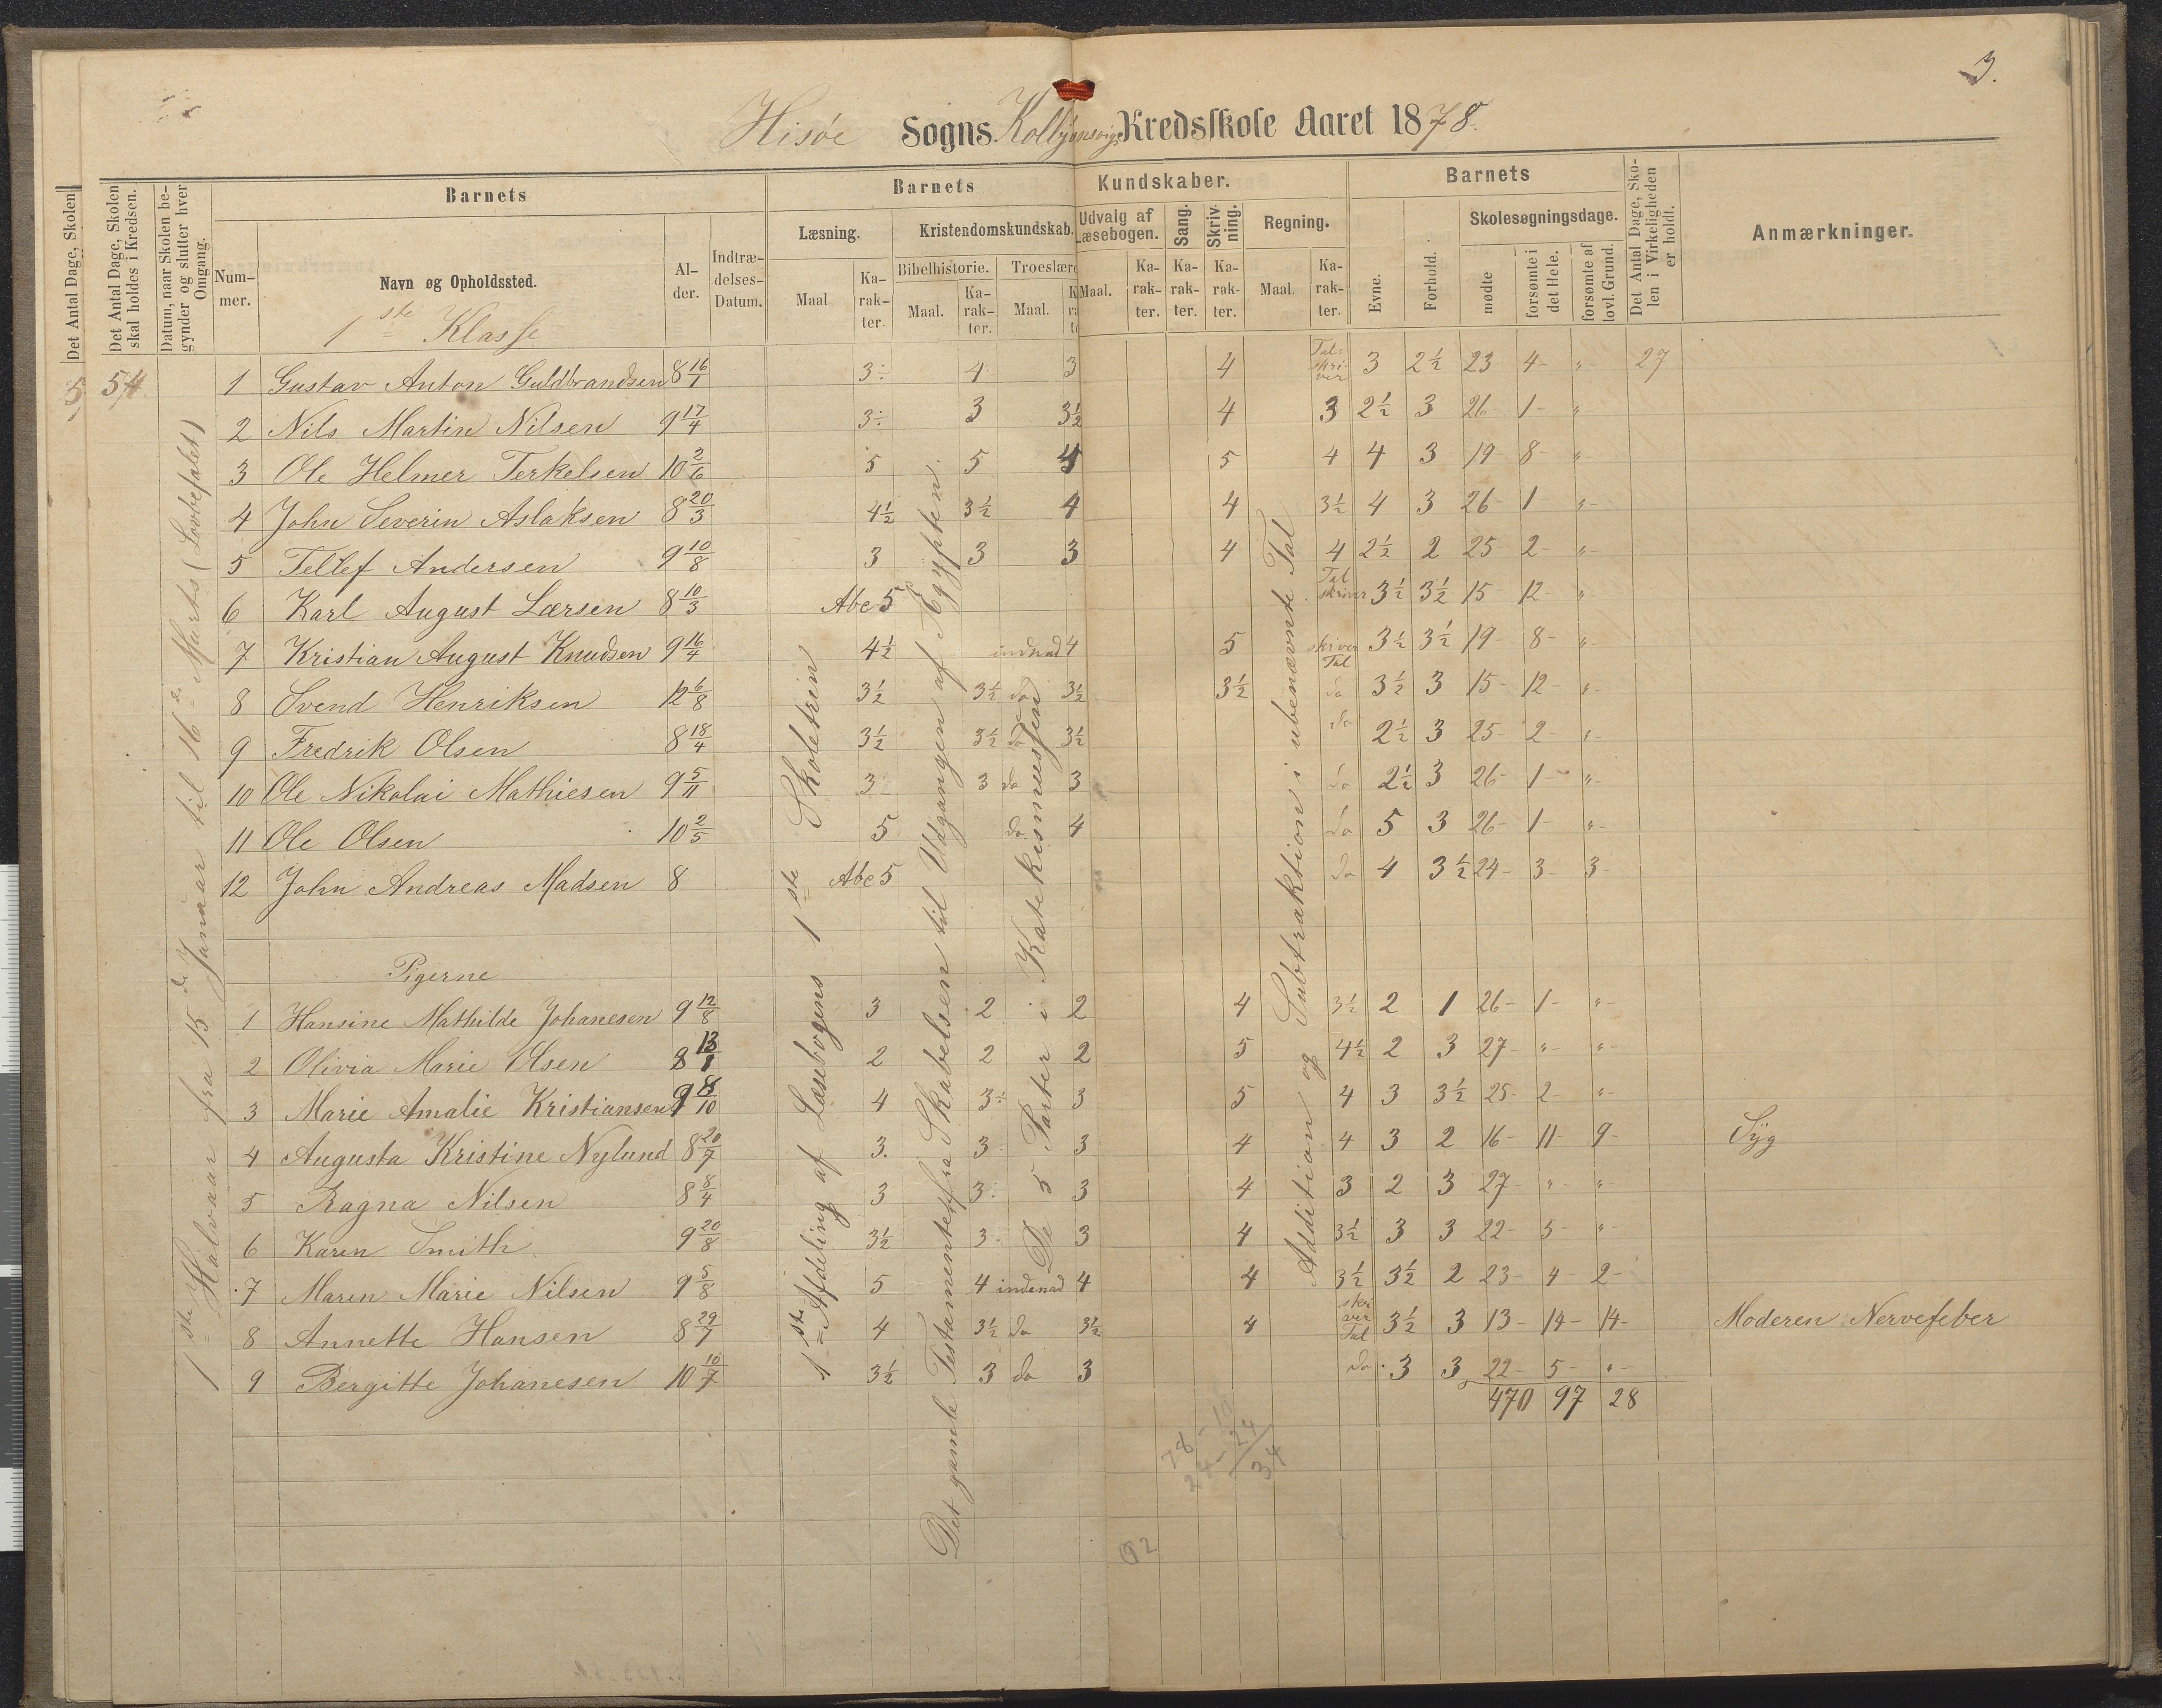 3.
Hisøe Sogns Kolbjønsvigs Kredsskole Aaret 1878.
Det Antal Dage, Skolen
Det Antal Dage, Skolen skal holdes i Kredsen.
Datum, naar Skolen begynder og slutter hver Omgang.
Barnets
Nummer.
Navn og Opholdssted.
Alder.
Indtrædelses-Datum.
Barnets Kundskaber.
Læsning.
Maal
Karakter.
Kristendomskundskab.
Bibelhistorie.
Maal.
Karakter.
Troeslære
Maal.
Udvalg af Læsebogen.
Maal.
Karakter.
Sang.
Karakter.
Skrivning.
Karakter.
Regning.
Maal.
Karakter.
Barnets
Evne.
Forhold.
Skolesøgningsdage.
mødte
forsømte i det Hele.
forsømte af lovl. Grund.
Det Antal Dage, Skolen i Virkeligheden er holdt.
Anmærkninger.
1ste Klasse
54
1ste Halvaar fra 15de Januar til 16de Marts (Lovbefalet)
1ste Afdeling af Læsebogens 1ste Skoletrin
Det gamle Testamente fra Skabelsen til Udgangen af Ægypten
De 5 Parter i Katekismussen
Addition og Subtraktion i ubenævnte Tal
1 Gustav Anton Guldbrandsen 8 16/1 3÷ 4 3 4 Tal: skriver 3 2½ 23 4 " 27
2 Nils Martin Nilsen 9 17/4 3÷ 3 3½ 4 3 2½ 3 26 1 "
3 Ole Helmer Terkelsen 10 2/6 5 5 4 5 4 4 3 19 8 "
4 John Severin Aslaksen 8 20/3 4½ 3½ 4 4 3½ 4 3 26 1 "
5 Tellef Andersen 9 10/8 3 3 3 4 4 2½ 2 25 2 "
6 Karl August Larsen 8 10/3 Abc 5 Tal skriver 3½ 3½ 15 12 "
7 Kristian August Knudsen 9 16/4 4½ indenad 4 5 skriver Tal 3½ 3½ 19 8 "
8 Svend Henriksen 12 6/8 3½ 3½ do 3½ 3½ do 3½ 3 15 12 "
9 Fredrik Olsen 8 18/4 3½ 3½ do 3½ do 2½ 3 25 2 "
10 Ole Nikolai Mathiesen 9 5/11 3÷ 3 do 3 do 2½ 3 26 1 "
11 Ole Olsen 10 2/5 5 do 4 do 5 3 26 1 "
12 John Andreas Madsen 8 Abc 5 do 4 3½ 24 3 3
Pigerne
1 Hansine Mathilde Johanesen 9 12/8 3 2 2 4 3½ 2 1 26 1 "
2 Olivia Marie Olsen 8 2 2 2 5 4½ 2 3 27 " "
3 Marie Amalie Kristiansen 9 8/10 4 3÷ 3 5 4 3 3½ 25 2 "
4 Augusta Kristine Nylund 8 20/7 3. 3 3 4 4 3 2 16 11 9 Syg
5 Ragna Nilsen 8 8/4 3 3÷ 3 4 3 2 3 27 " "
6 Karen Smith 9 20/8 3½ 3÷ 3 4 3½ 3 3 22 5 "
7 Maren Marie Nilsen 9 5/8 5 4 indenad 4 4 3½ 3½ 2 23 4 2
8 Annette Hansen 8 29/7 4 3½ do 3½ 4 skriver Tal 3½ 3 13 14 14 Moderen Nervefeber
9 Bergitte Johanesen 10 10/7 3½ 3 do 3 do 3 3 22 5 "
470 97 28
78 - 10
24 - 24
34
92